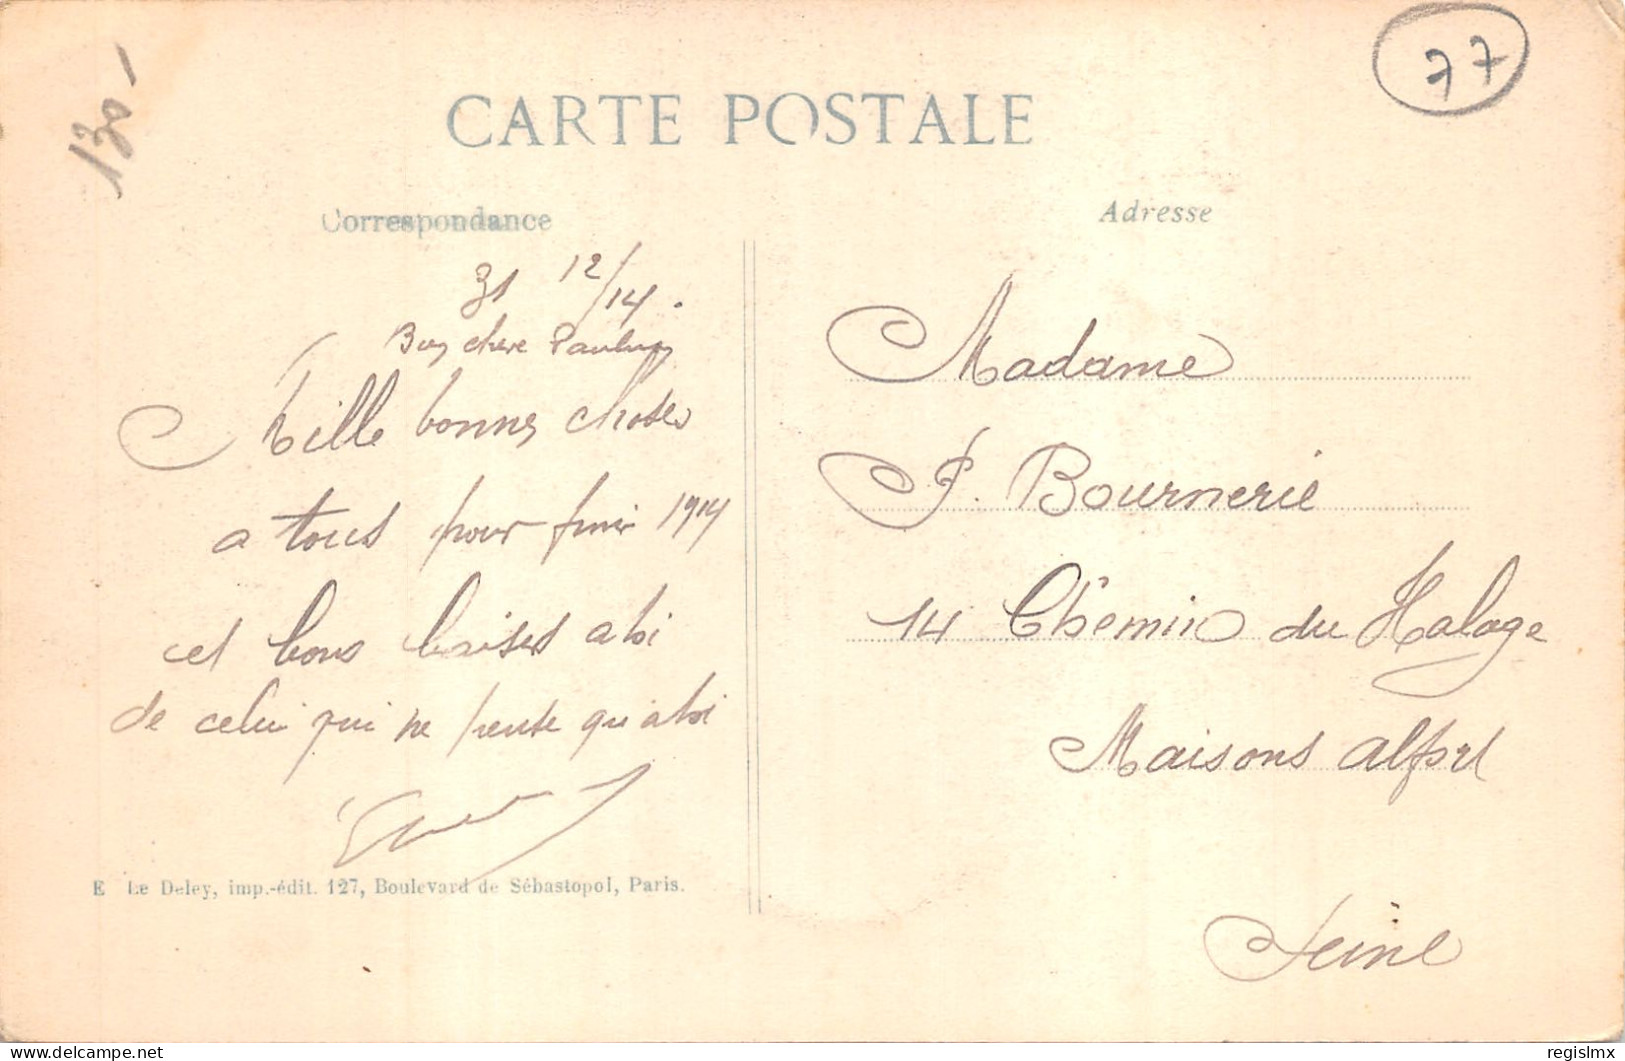 130 -
77
CARTE POSTALE
Correspondance
Adresse
31 12/14.
chère
Mille bonnes choses
a tous pour finir 1914
et bons baises a toi
de celui qui ne pense qu'a toi
E Le Deley, imp.-édit. 127, Boulevard de Sébastopol, Paris.
Madame
F. Bournerie
14 Chemin du Halage
Maisons Alfort
Seine
regislmx
www.delcampe.net